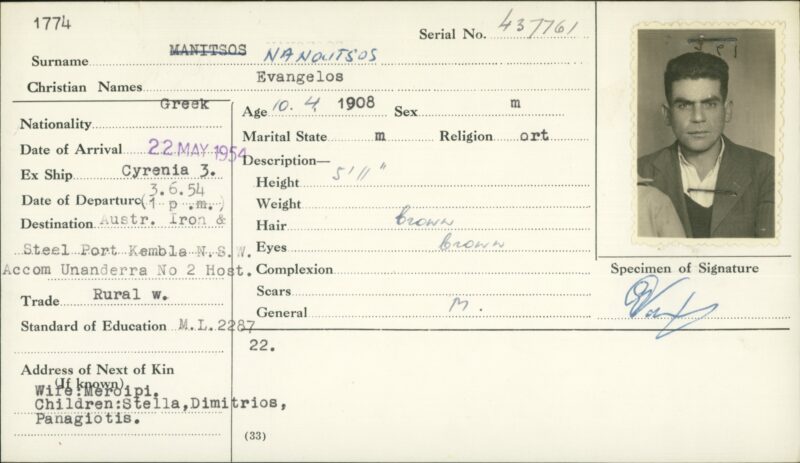 1774
Serial No. 437761
Surname MANITSOS NANOUTSOS
Christian Names Evangelos
Nationality Greek
Date of Arrival 22 MAY 1954
Ex Ship Cyrenia 3.
Date of Departure 3.6.54 (1 p.m.)
Destination Austr. Iron &
Steel Port Kembla N.S.W.
Accom Unanderra No 2 Host.
Trade Rural w.
Standard of Education M.L.2287
Address of Next of Kin
(If known)
Wife:Meroipi.
Children:Stella,Dimitrios,
Panagiotis.
Age 10. 4. 1908 Sex m
Marital State m Religion ort
Description—
Height 5'11"
Weight
Hair brown
Eyes brown
Complexion
Scars
General M.
22.
(33)
Specimen of Signature